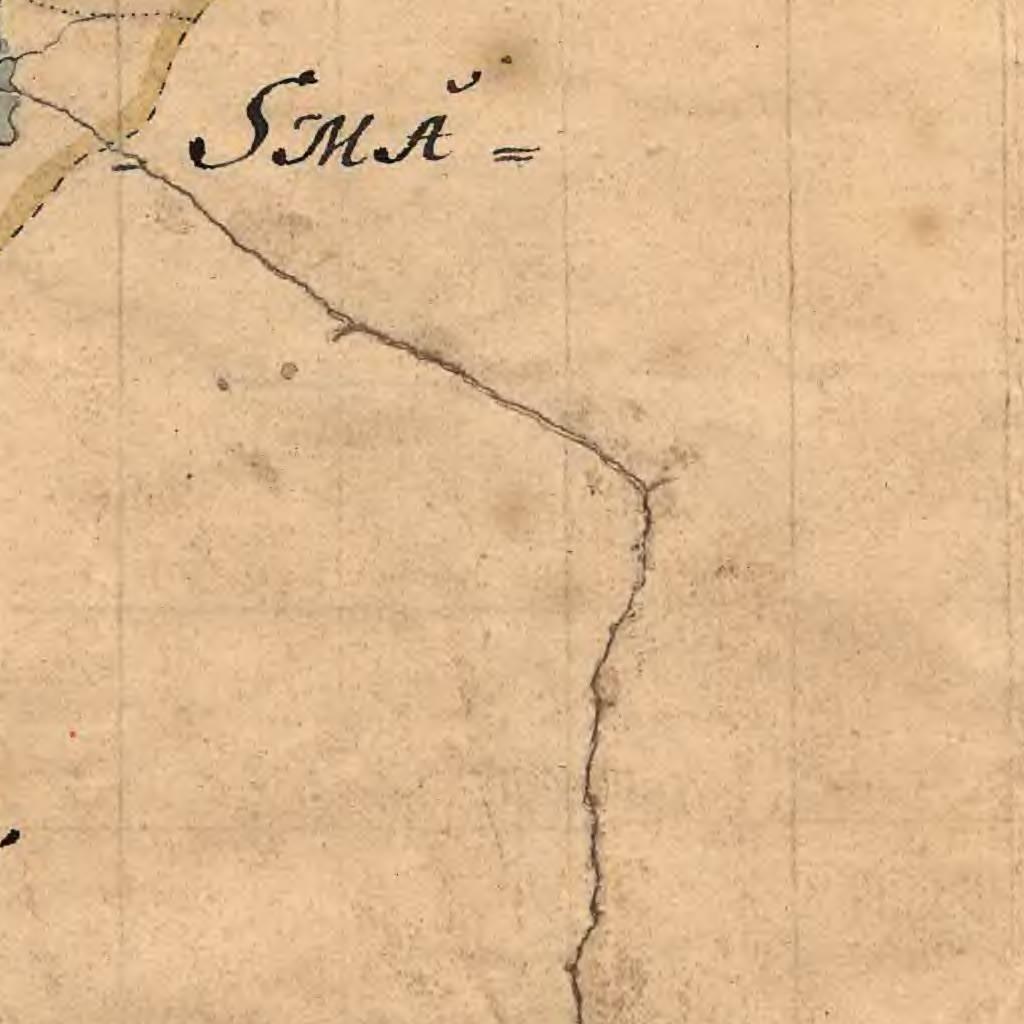 SMÅ=